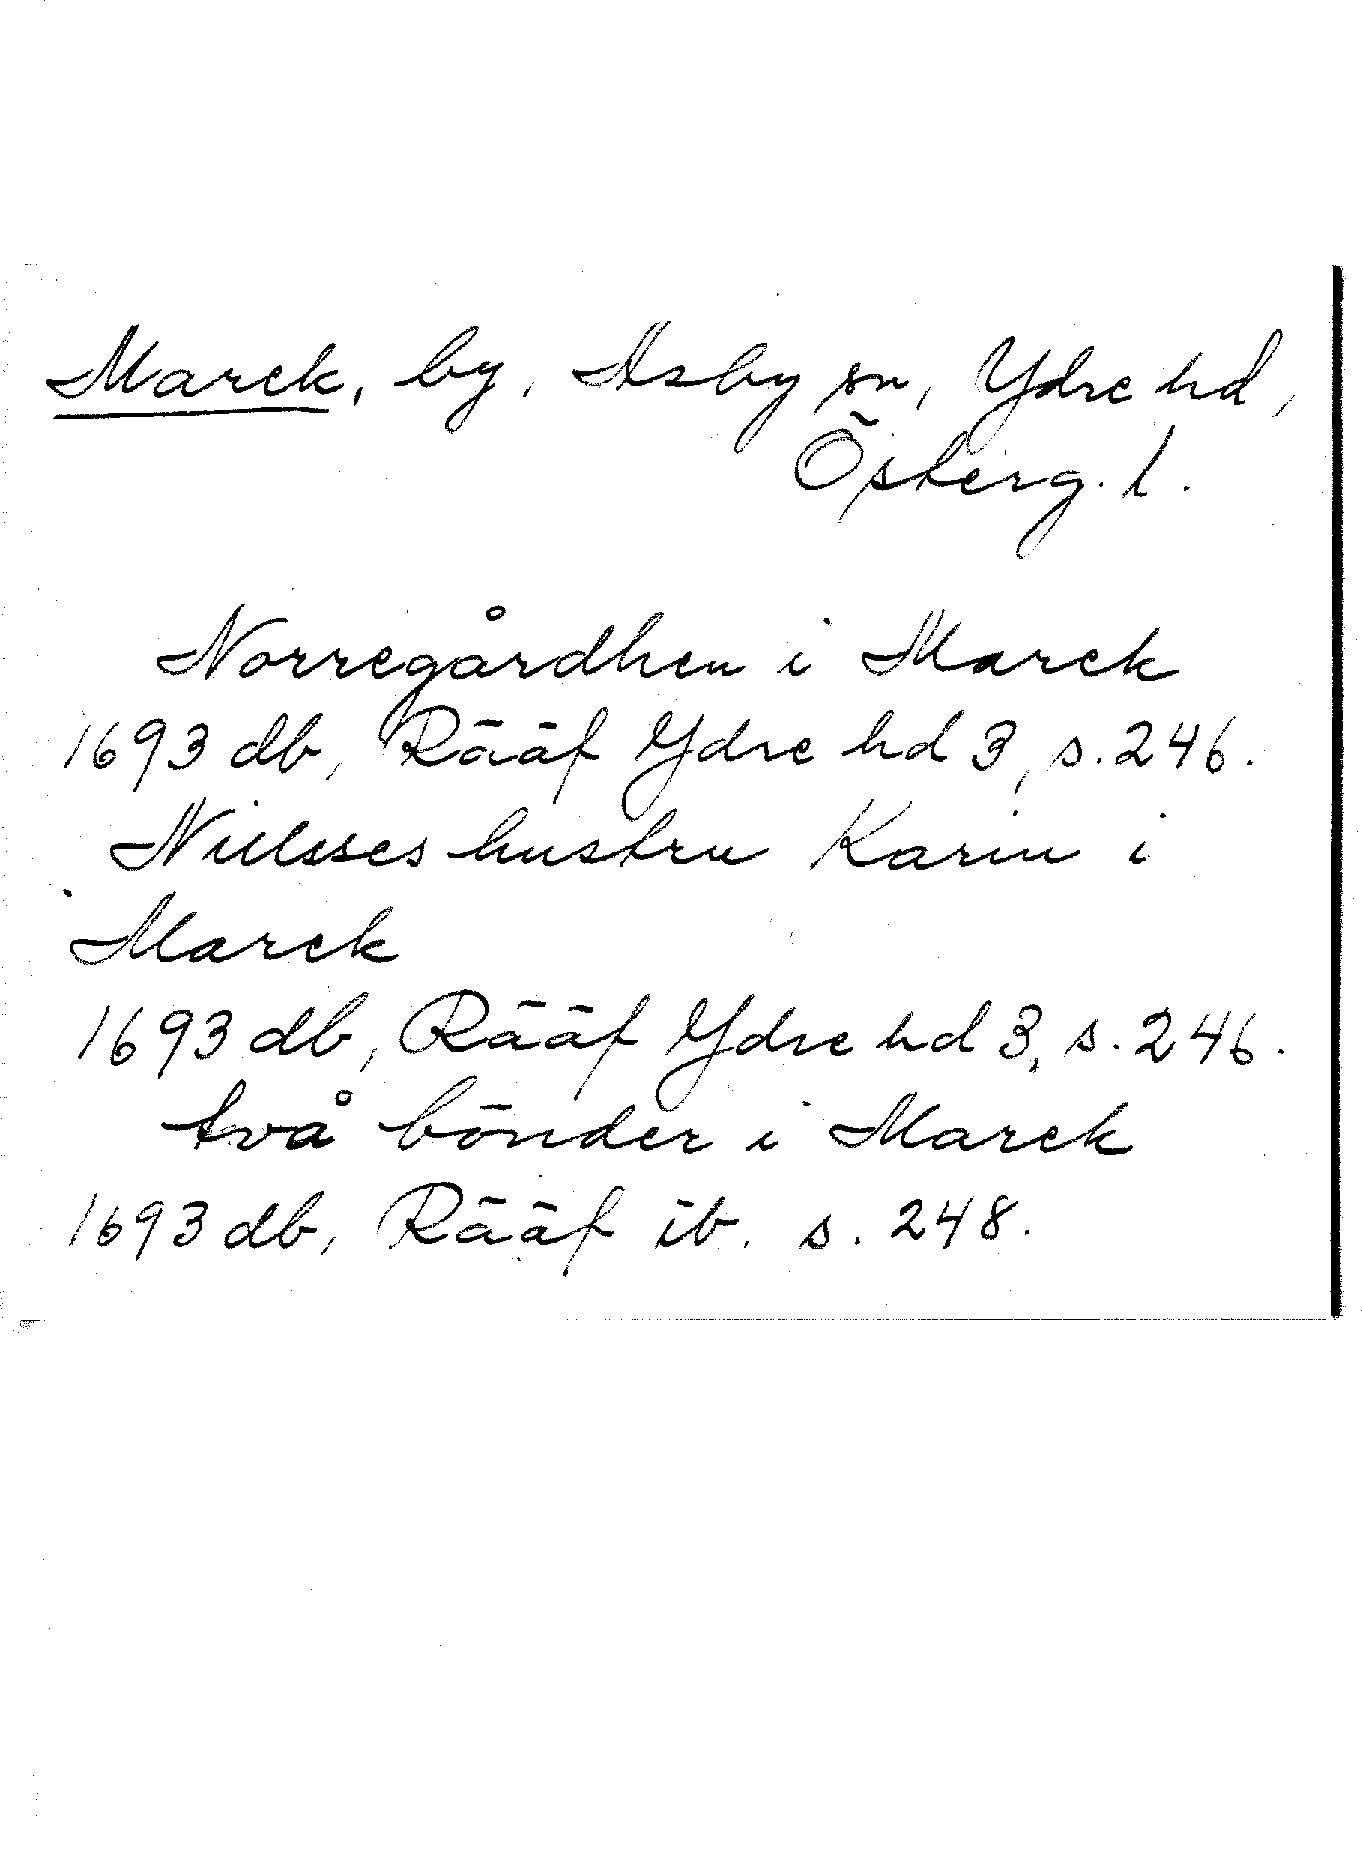 Marck, by, Asby sn, Ydre hd,
Österg. l.
Norregårdhen i Marck
1693 db, Rääf Ydre hd 3, s. 246.
Nielsses hustru Karin i
Marck
1693 db, Rääf Ydre hd 3, s. 246.
två bönder i Marck
1693 db, Rääf ib. s. 248.